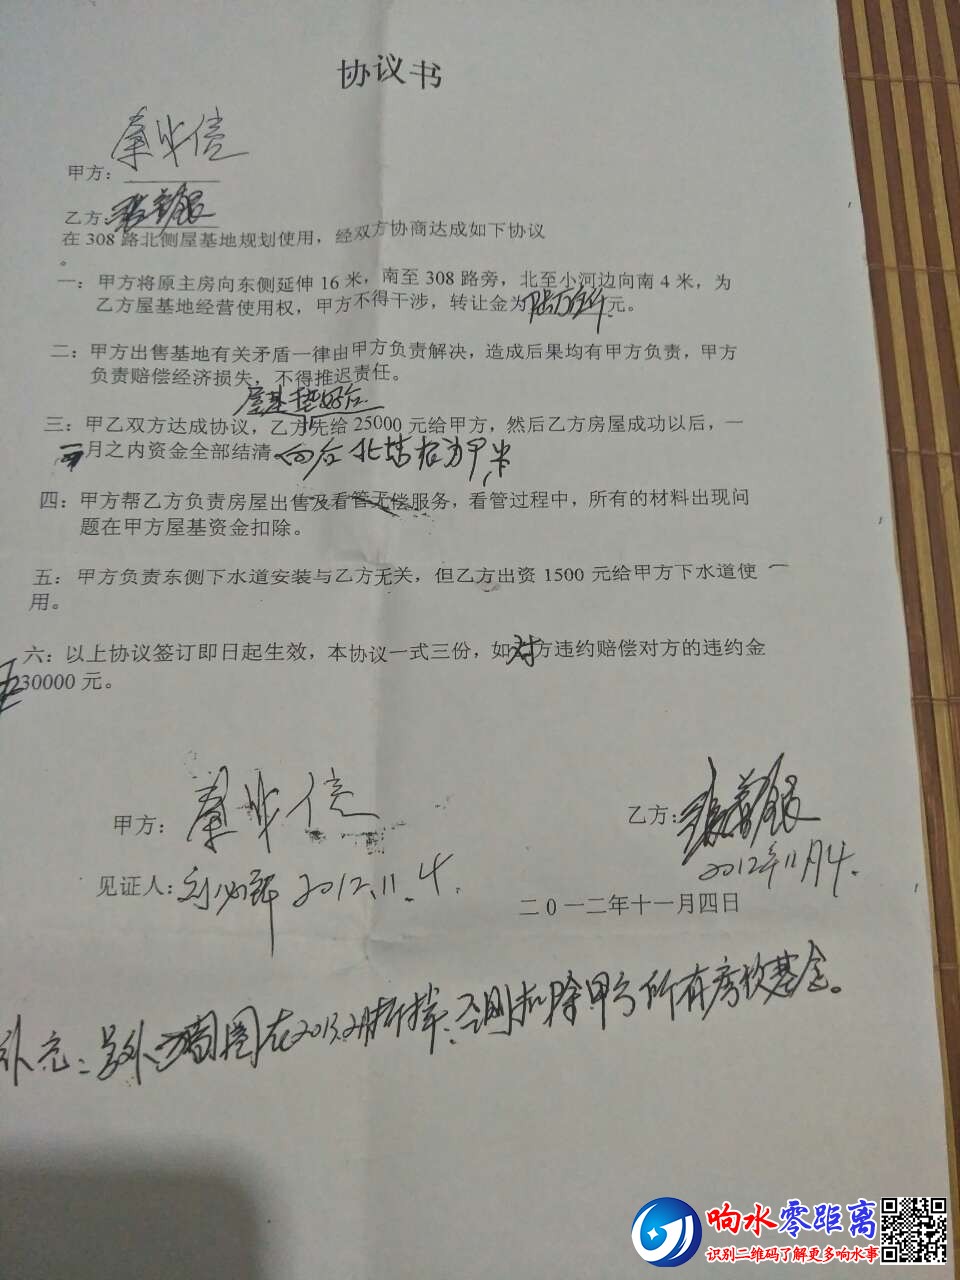 协议书
甲方：
乙方：
在 308 路北侧屋基地规划使用，经双方协商达成如下协议
。
一：甲方将原主房向东侧延伸 16 米，南至 308 路旁，北至小河边向南 4 米，为
乙方屋基地经营使用权，甲方不得干涉，转让金为陆万元。
二：甲方出售基地有关矛盾一律由甲方负责解决，造成后果均有甲方负责，甲方
负责赔偿经济损失，不得推迟责任。
屋基垫好后
三：甲乙双方达成协议，乙方先给 25000 元给甲方，然后乙方房屋成功以后，一
月之内资金全部结清
四：甲方帮乙方负责房屋出售及看管无偿服务，看管过程中，所有的材料出现问
题在甲方屋基资金扣除。
五：甲方负责东侧下水道安装与乙方无关，但乙方出资 1500 元给甲方下水道使
用。
六：以上协议签订即日起生效，本协议一式三份，如对方违约赔偿对方的违约金
30000 元。
甲方：
乙方：
2012年11月4.
见证人： 2012.11.4.
二0一二年十一月四日
补充：另外 周围在2013.2月拆掉，否则扣除甲方所有房款基金。
响水零距离
识别二维码了解更多响水事